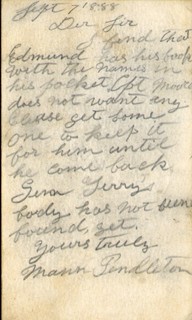 Sept 7 1888
Der Sir
I find that
Edmund has his book
with the names in
his pocket Cpt Moore
does not want any
Please get some
one to keep it
for him until
he come back
Gern Terry
body has not been
found yet.
Yours truly
Mann Pendleton